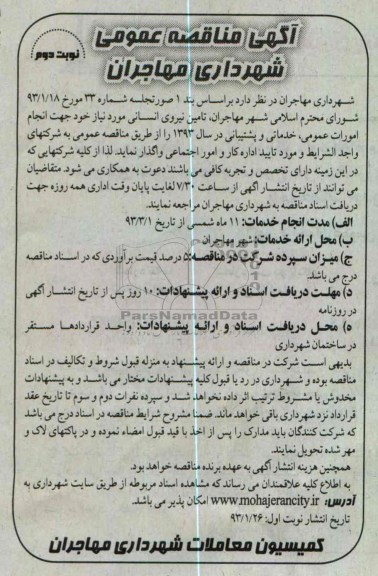 آگهی مناقصه عمومی
شهرداری مهاجران
نوبت دوم
شهرداری مهاجران در نظر دارد براساس بند ۱ صورتجلسه شماره ۳۳ مورخ ۹۳/۱/۱۸
شورای محترم اسلامی شهر مهاجران، تامین نیروی انسانی مورد نیاز خود جهت انجام
امورات عمومی، خدماتی و پشتیبانی در سال ۱۳۹۳ را از طریق مناقصه عمومی به شرکتهای
واجد الشرایط و مورد تایید اداره کار و امور اجتماعی واگذار نماید. لذا از کلیه شرکتهایی که
در این زمینه دارای تخصص و تجربه کافی می باشند دعوت به همکاری می شود. متقاضیان
می توانند از تاریخ انتشار آگهی از ساعت ۷/۳۰ لغایت پایان وقت اداری همه روزه جهت
دریافت اسناد مناقصه به شهرداری مهاجران مراجعه نمایند.
الف) مدت انجام خدمات: ۱۱ ماه شمسی از تاریخ ۹۳/۳/۱
ب) محل ارائه خدمات: شهر مهاجران
ج) میزان سپرده شرکت در مناقصه: ۵ درصد قیمت برآوردی که در اسناد مناقصه
درج می باشد.
د) مهلت دریافت اسناد و ارائه پیشنهادات: ۱۰ روز پس از تاریخ انتشار آگهی
در روزنامه
ه) محل دریافت اسناد و ارائه پیشنهادات: واحد قراردادها مستقر
در ساختمان شهرداری
بدیهی است شرکت در مناقصه و ارائه پیشنهاد به منزله قبول شروط و تکالیف در اسناد
مناقصه بوده و شهرداری در رد یا قبول کلیه پیشنهادات مختار می باشد و به پیشنهادات
مخدوش یا مشروط ترتیب اثر داده نخواهد شد و سپرده نفرات دوم و سوم تا تاریخ عقد
قرارداد نزد شهرداری باقی خواهد ماند. ضمنا مشروح شرایط مناقصه در اسناد درج می باشد
که شرکت کنندگان باید مدارک را پس از اخذ با قید قبول امضاء نموده و در پاکتهای لاک و
مهر شده تحویل نمایند.
همچنین هزینه انتشار آگهی به عهده برنده مناقصه خواهد بود.
به اطلاع کلیه علاقمندان می رساند که مشاهده اسناد مربوطه از طریق سایت شهرداری به
آدرس: www.mohajerancity.ir امکان پذیر می باشد.
تاریخ انتشار نوبت اول: ۹۳/۱/۲۶
کمیسیون معاملات شهرداری مهاجران
ParsNamadData